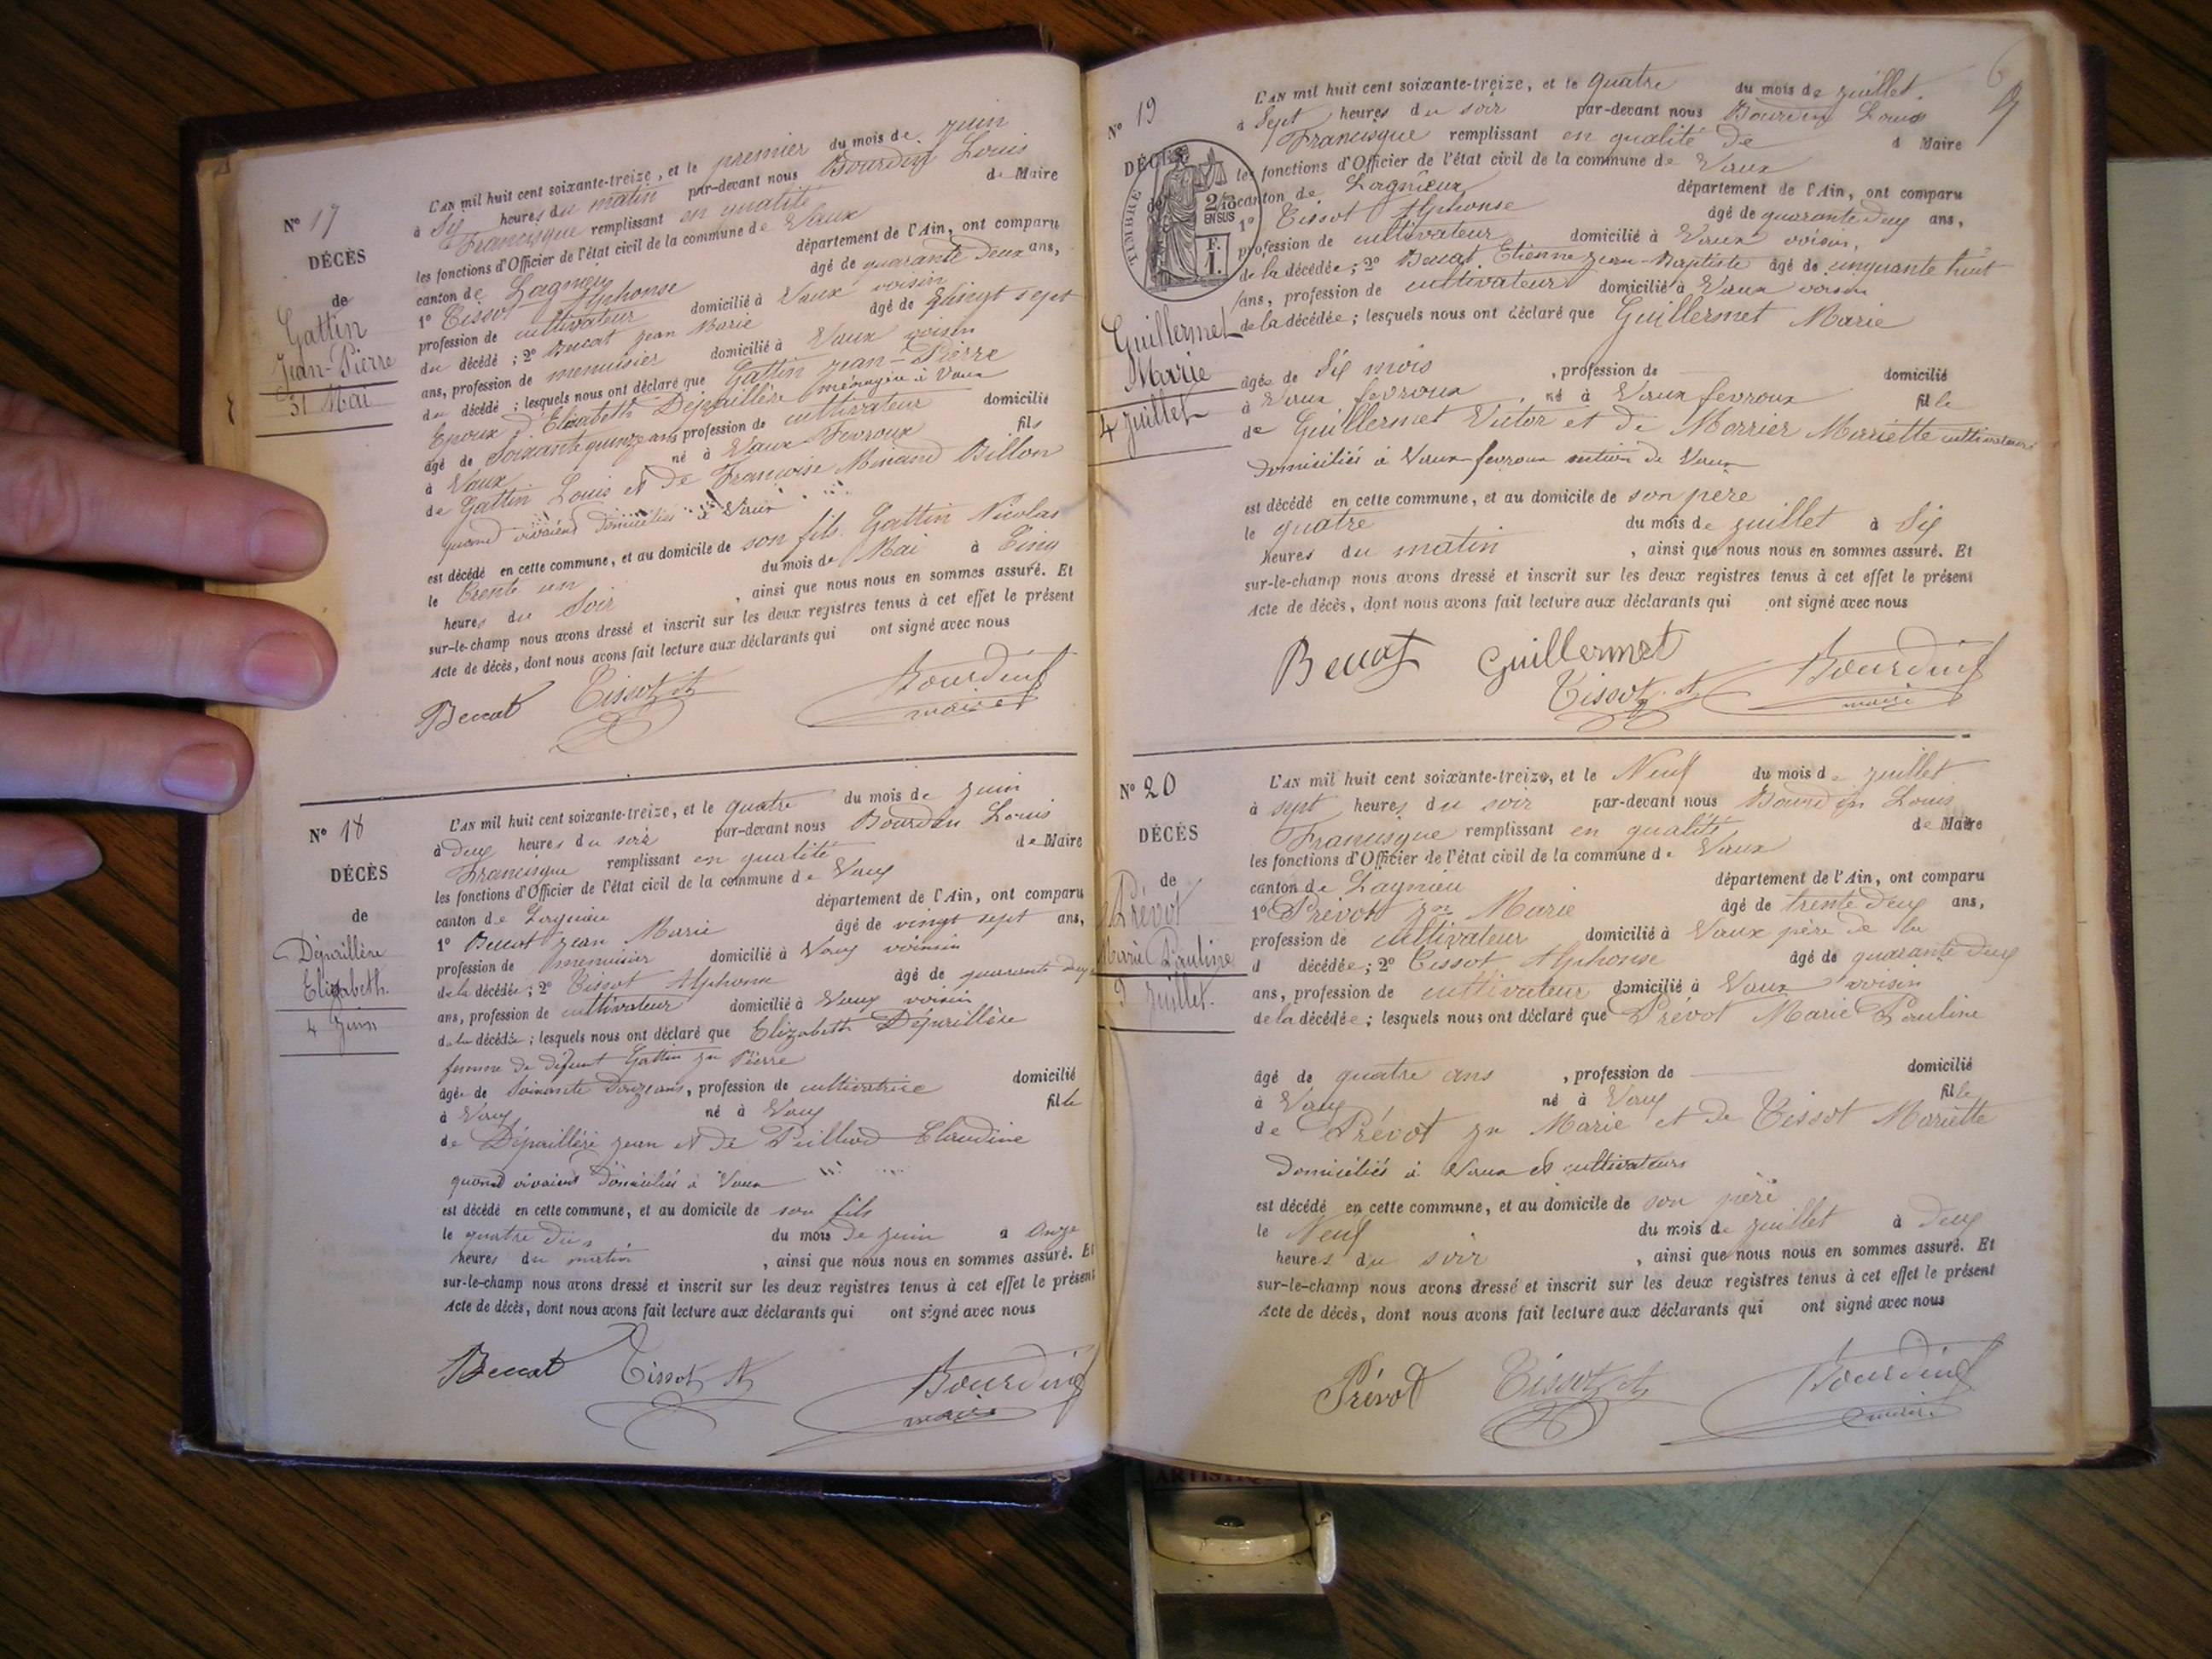 N° 17
DÉCÈS
de
Gattin
Jean-Pierre
31 Mai
L'AN mil huit cent soixante-treize, et le premier du mois de juin
à Six heures du matin par-devant nous Bourdin Louis
Francisque remplissant en qualité de Maire
les fonctions d'Officier de l'état civil de la commune de Vaux
canton de Lagnieu département de l'Ain, ont comparu
1° Tissot Alphonse âgé de quarante deux ans,
profession de cultivateur domicilié à Vaux voisin
du décédé ; 2° Beccat Jean Marie âgé de Vingt sept
ans, profession de menuisier domicilié à Vaux voisin
du décédé ; lesquels nous ont déclaré que Gattin Jean-Pierre
Epoux d'Elisabeth Dépaillère ménagère à Vaux
âgé de Soixante quinze ans profession de cultivateur domicilié
à Vaux né à Vaux Fevroux fils
de Gattin Louis et de Françoise Minand Billon
quand vivaient domiciliés à Vaux
est décédé en cette commune, et au domicile de son fils Gattin Nicolas
le Trente un du mois de Mai à Cinq
heures du Soir, ainsi que nous nous en sommes assuré. Et
sur-le-champ nous avons dressé et inscrit sur les deux registres tenus à cet effet le présent
Acte de décès, dont nous avons fait lecture aux déclarants qui ont signé avec nous
Beccat Tissot A Bourdin
maire
N° 18
DÉCÈS
de
Dépaillère
Elizabeth
4 Juin
L'AN mil huit cent soixante-treize, et le quatre du mois de juin
à deux heures du soir par-devant nous Bourdin Louis
Francisque remplissant en qualité de Maire
les fonctions d'Officier de l'état civil de la commune de Vaux
canton de Lagnieu département de l'Ain, ont comparu
1° Beccat Jean Marie âgé de vingt sept ans,
profession de menuisier domicilié à Vaux voisin
de la décédée ; 2° Tissot Alphonse âgé de quarante deux
ans, profession de cultivateur domicilié à Vaux voisin
de la décédée ; lesquels nous ont déclaré que Elizabeth Dépaillère
femme de défunt Gattin Jn Pierre
âgée de Soixante Douze ans, profession de cultivatrice domicilié
à Vaux né à Vaux fille
de Dépaillère Jean et de Claudine
quand vivaient domiciliés à Vaux
est décédé en cette commune, et au domicile de son fils
le quatre du mois de juin à Onze
heures du matin, ainsi que nous nous en sommes assuré. Et
sur-le-champ nous avons dressé et inscrit sur les deux registres tenus à cet effet le présent
Acte de décès, dont nous avons fait lecture aux déclarants qui ont signé avec nous
Beccat Tissot A Bourdin
maire
6
N° 19
DÉCÈS
TIMBRE
2/10
EN SUS
F.
1.
Guillermet
Marie
4 Juillet
L'AN mil huit cent soixante-treize, et le quatre du mois de juillet
à Sept heures du soir par-devant nous Bourdin Louis
Francisque remplissant en qualité de d Maire
les fonctions d'Officier de l'état civil de la commune de Vaux
canton de Lagnieux département de l'Ain, ont comparu
1° Tissot Alphonse âgé de quarante deux ans,
profession de cultivateur domicilié à Vaux voisin,
de la décédée ; 2° Beccat Etienne Jean-Baptiste âgé de cinquante huit
ans, profession de cultivateur domicilié à Vaux voisin
de la décédée ; lesquels nous ont déclaré que Guillermet Marie
âgée de Six mois, profession de domicilié
à Vaux fevroux né à Vaux fevroux fille
de Guillermet Victor et de Morrier Marriette cultivateurs
domiciliés à Vaux fevroux section de Vaux
est décédé en cette commune, et au domicile de son père
le quatre du mois de juillet à Six
heures du matin, ainsi que nous nous en sommes assuré. Et
sur-le-champ nous avons dressé et inscrit sur les deux registres tenus à cet effet le présent
Acte de décès, dont nous avons fait lecture aux déclarants qui ont signé avec nous
Beccat Guillermet Bourdin
Tissot A maire
N° 20
DÉCÈS
de
Prévot
Marie Pauline
9 Juillet.
L'AN mil huit cent soixante-treize, et le Neuf du mois de juillet
à sept heures du soir par-devant nous Bourdin Louis
Francisque remplissant en qualité de Maire
les fonctions d'Officier de l'état civil de la commune de Vaux
canton de Lagnieu département de l'Ain, ont comparu
1° Prévot Jn Marie âgé de trente deux ans,
profession de cultivateur domicilié à Vaux père de la
d décédée ; 2° Tissot Alphonse âgé de quarante deux
ans, profession de cultivateur domicilié à Vaux voisin
de la décédée ; lesquels nous ont déclaré que Prévot Marie Pauline
âgé de quatre ans, profession de domicilié
à Vaux né à Vaux fille
de Prévot Jn Marie et de Tissot Mariette
domiciliés à Vaux et cultivateurs
est décédé en cette commune, et au domicile de son père
le Neuf du mois de juillet à deux
heures du soir, ainsi que nous nous en sommes assuré. Et
sur-le-champ nous avons dressé et inscrit sur les deux registres tenus à cet effet le présent
Acte de décès, dont nous avons fait lecture aux déclarants qui ont signé avec nous
Prévot Tissot A Bourdin
maire